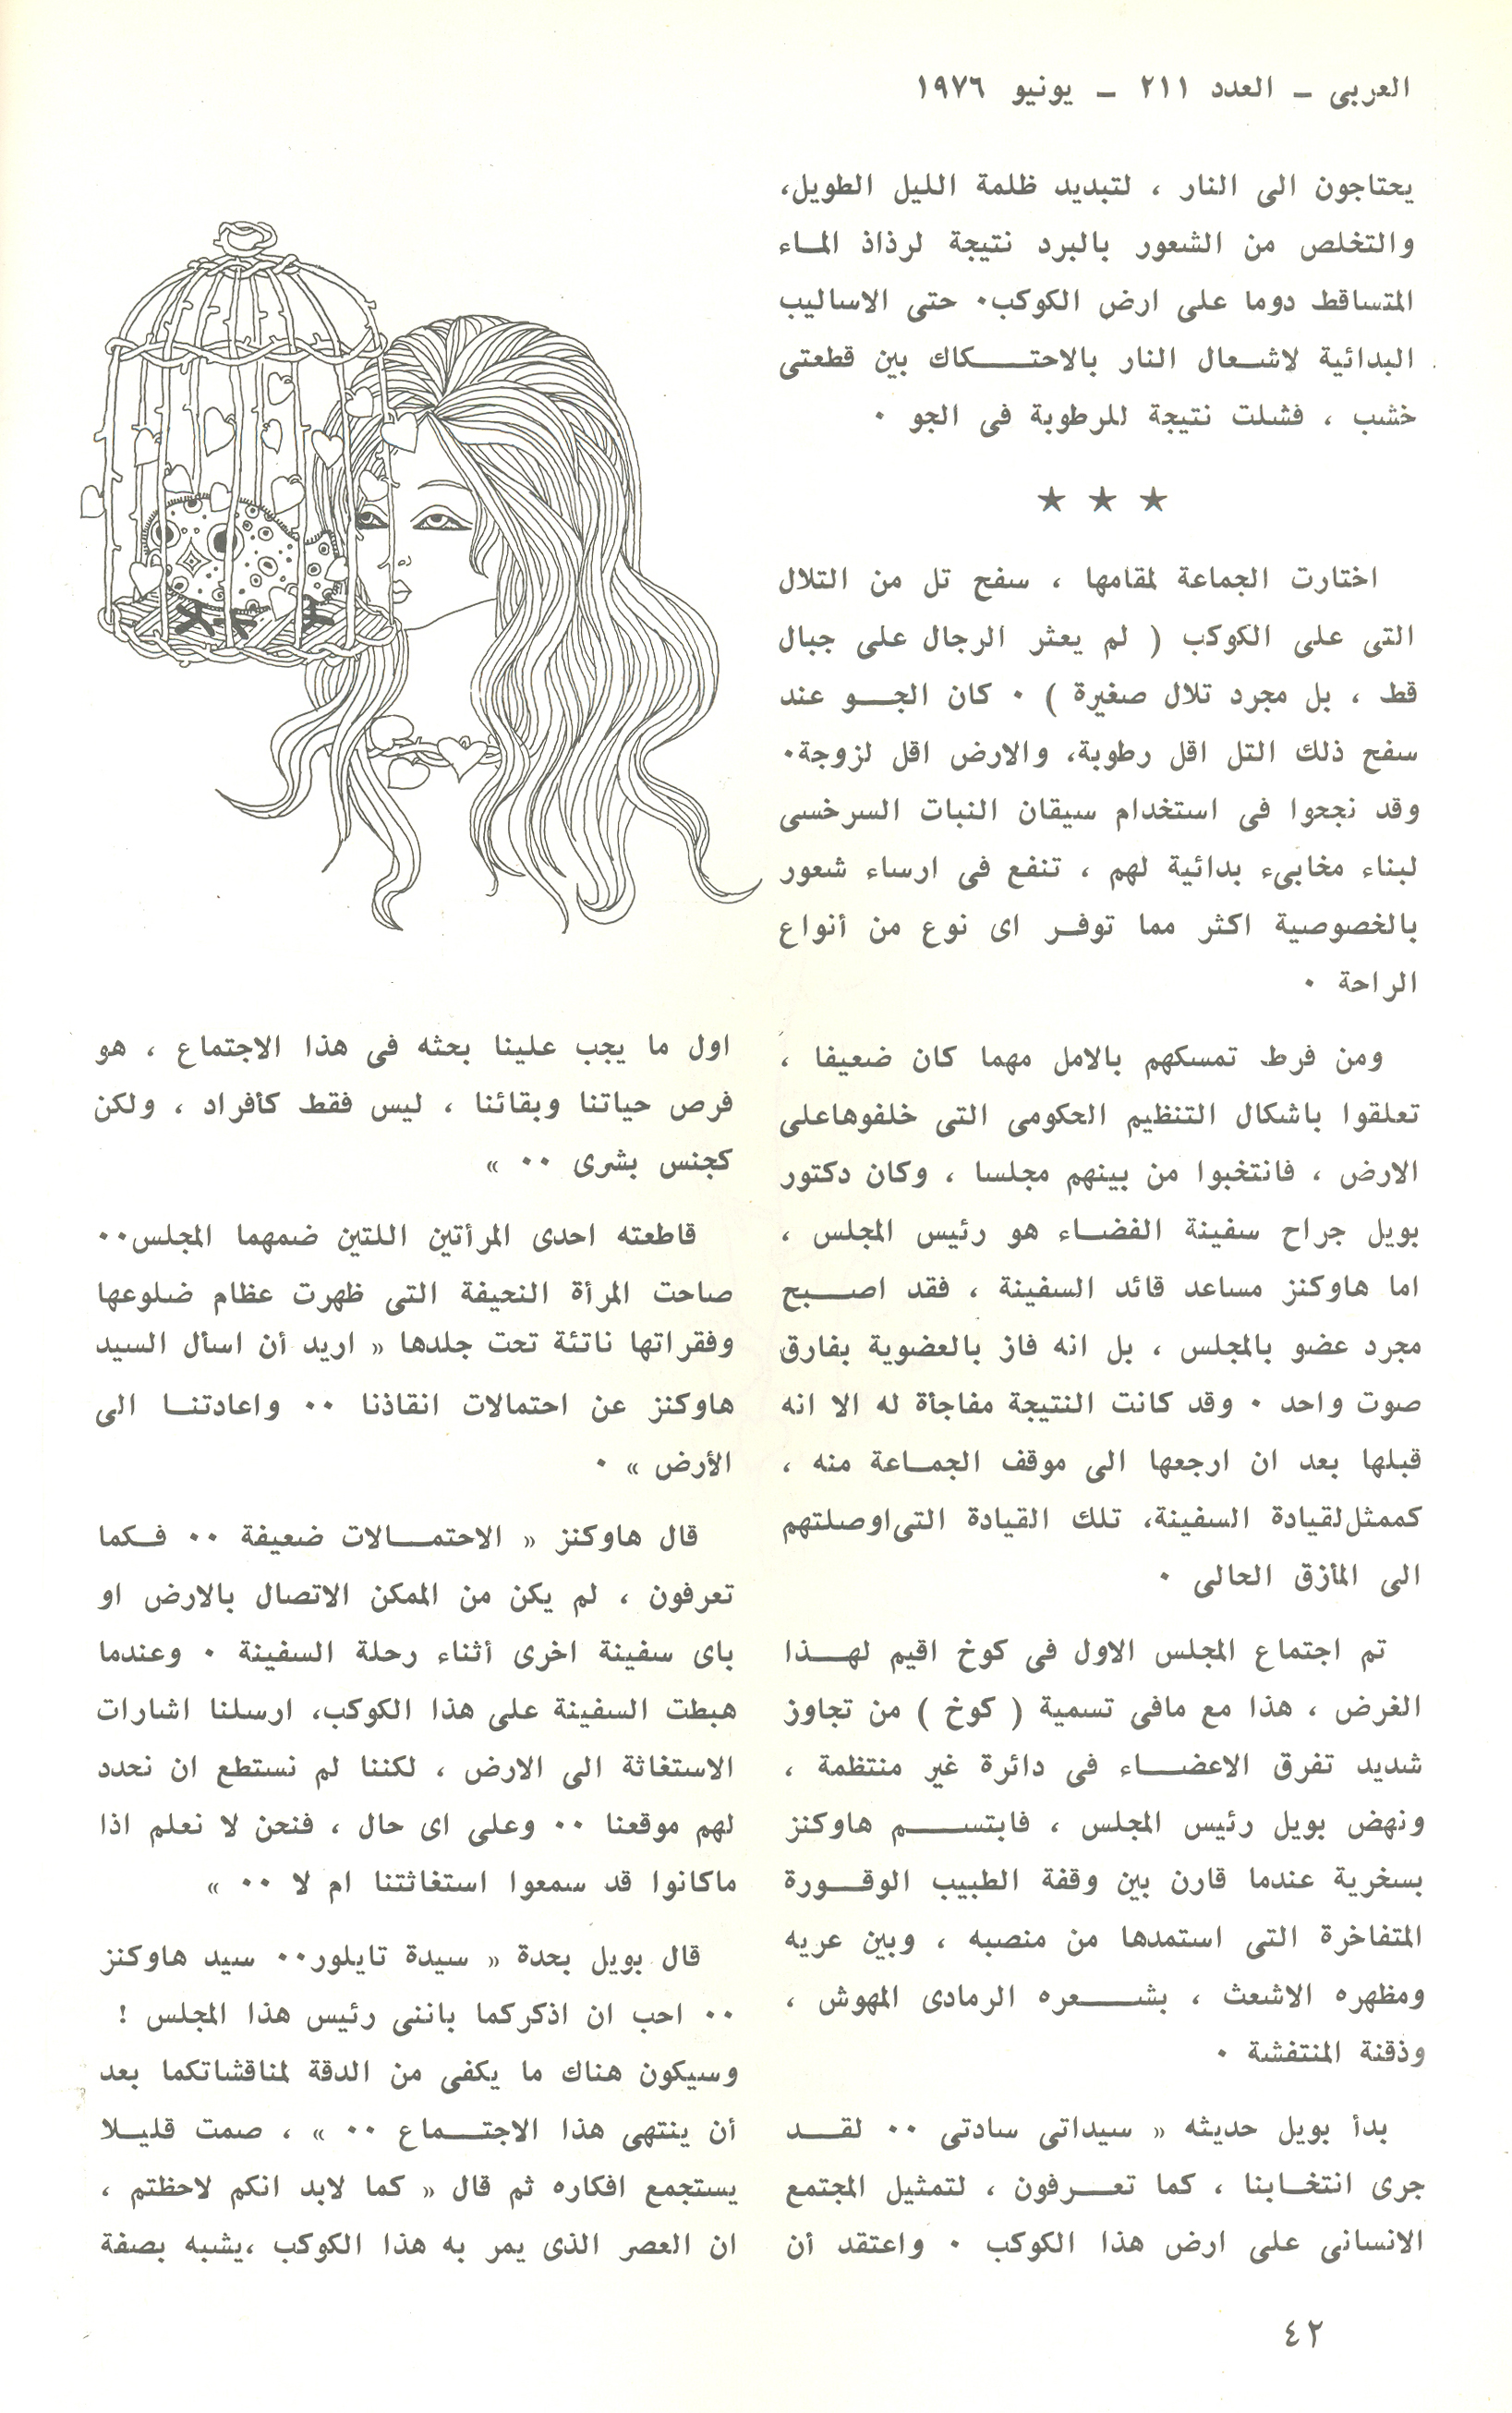 العربى – العدد ٢١١ – يونيو ١٩٧٦
يحتاجون الى النار ، لتبديد ظلمة الليل الطويل،
والتخلص من الشعور بالبرد نتيجة لرذاذ الماء
المتساقط دوما على ارض الكوكب٠ حتى الاساليب
البدائية لاشعال النار بالاحتكاك بين قطعتى
خشب ، فشلت نتيجة للرطوبة فى الجو ٠
★ ★ ★
اختارت الجماعة لمقامها ، سفح تل من التلال
التى على الكوكب ( لم يعثر الرجال على جبال
قط ، بل مجرد تلال صغيرة ) ٠ كان الجو عند
سفح ذلك التل اقل رطوبة، والارض اقل لزوجة٠
وقد نجحوا فى استخدام سيقان النبات السرخسى
لبناء مخابىء بدائية لهم ، تنفع فى ارساء شعور
بالخصوصية اكثر مما توفر اى نوع من أنواع
الراحة ٠
ومن فرط تمسكهم بالامل مهما كان ضعيفا ،
تعلقوا باشكال التنظيم الحكومى التى خلفوهاعلى
الارض ، فانتخبوا من بينهم مجلسا ، وكان دكتور
بويل جراح سفينة الفضاء هو رئيس المجلس ،
اما هاوكنز مساعد قائد السفينة ، فقد اصبح
مجرد عضو بالمجلس ، بل انه فاز بالعضوية بفارق
صوت واحد ٠ وقد كانت النتيجة مفاجأة له الا انه
قبلها بعد ان ارجعها الى موقف الجماعة منه ،
كممثل لقيادة السفينة، تلك القيادة التى اوصلتهم
الى المأزق الحالى ٠
تم اجتماع المجلس الاول فى كوخ اقيم لهذا
الغرض ، هذا مع مافى تسمية ( كوخ ) من تجاوز
شديد تفرق الاعضاء فى دائرة غير منتظمة ،
ونهض بويل رئيس المجلس ، فابتسم هاوكنز
بسخرية عندما قارن بين وقفة الطبيب الوقورة
المتفاخرة التى استمدها من منصبه ، وبين عريه
ومظهره الاشعث ، بشعره الرمادى المهوش ،
وذقنة المنتفشة ٠
بدأ بويل حديثه « سيداتى سادتى ٠٠ لقد
جرى انتخابنا ، كما تعرفون ، لتمثيل المجتمع
الانسانى على ارض هذا الكوكب ٠ واعتقد أن
اول ما يجب علينا بحثه فى هذا الاجتماع ، هو
فرص حياتنا وبقائنا ، ليس فقط كأفراد ، ولكن
كجنس بشرى ٠٠ »
قاطعته احدى المرأتين اللتين ضمهما المجلس٠٠
صاحت المرأة النحيفة التى ظهرت عظام ضلوعها
وفقراتها ناتئة تحت جلدها « اريد أن اسأل السيد
هاوكنز عن احتمالات انقاذنا ٠٠ واعادتنا الى
الأرض » ٠
قال هاوكنز « الاحتمالات ضعيفة ٠٠ فكما
تعرفون ، لم يكن من الممكن الاتصال بالارض او
باى سفينة اخرى أثناء رحلة السفينة ٠ وعندما
هبطت السفينة على هذا الكوكب، ارسلنا اشارات
الاستغاثة الى الارض ، لكننا لم نستطع ان نحدد
لهم موقعنا ٠٠ وعلى اى حال ، فنحن لا نعلم اذا
ماكانوا قد سمعوا استغاثتنا ام لا ٠٠ »
قال بويل بحدة « سيدة تايلور٠٠ سيد هاوكنز
٠٠ احب ان اذكركما باننى رئيس هذا المجلس !
وسيكون هناك ما يكفى من الدقة لمناقشاتكما بعد
أن ينتهى هذا الاجتماع ٠٠ » ، صمت قليلا
يستجمع افكاره ثم قال « كما لابد انكم لاحظتم ،
ان العصر الذى يمر به هذا الكوكب ،يشبه بصفة
٤٢